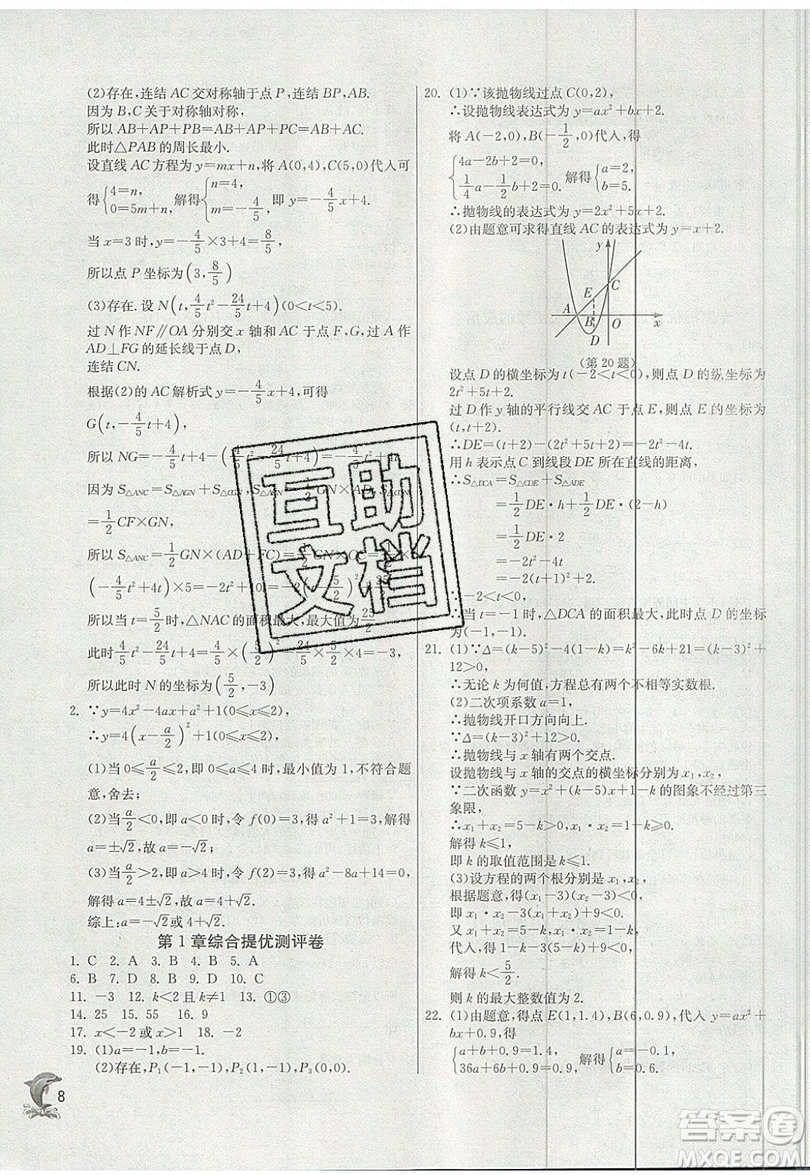 (2)存在,连结 AC 交对称轴于点 P,连结 BP,AB.
因为 B,C 关于对称轴对称,
所以 AB+AP+PB=AB+AP+PC=AB+AC.
此时△PAB 的周长最小.
设直线 AC 方程为 y=mx+n,将 A(0,4),C(5,0)代入可
得{4=n, 0=5m+n, 解得{n=4, m=-4/5, 即 y=-4/5x+4.
当 x=3 时,y=-4/5×3+4=8/5,
所以点 P 坐标为(3,8/5)
(3)存在.设 N(t,4/5t²-24/5t+4)(0<t<5).
过 N 作 NF∥OA 分别交 x 轴和 AC 于点 F,G,过 A 作
AD⊥FG 的延长线于点 D,
连结 CN.
根据(2)的 AC 解析式,可得
G(t,-4/5t+4),
所以 NG=-4/5t+4-(4/5t²-24/5t+4)=
因为 S△ANC=S△AGN+S△CGN
=1/2
所以 S△ANC=1/2GN×(AD+FC)=1/2×
(-4/5t²+4t)×5=-2t²+10t=-2(t
所以当 t=5/2时,△NAC 的面积最大,最大值为25/2
此时4/5t²-24/5t+4=4/5×
+4=-3,
所以此时 N 的坐标为(5/2,-3)
2. ∵y=4x²-4ax+a²+1(0≤x≤2),
∴y=4(x-a/2)²+1(0≤x≤2),
(1)当 0≤a/2≤2 时,即 0≤a≤4 时,最小值为 1,不符合题
意,舍去;
(2)当a/2<0,即 a<0 时,令 f(0)=3,得 a²+1=3,解得
a=±√2,故 a=-√2;
(3)当a/2>2,即 a>4 时,令 f(2)=3,即 a²-8a+14=0,
解得 a=4±√2,故 a=4+√2.
综上:a=-√2或 4+√2.
第 1 章综合提优测评卷
1. C 2. A 3. B 4. B 5. A
6. B 7. D 8. B 9. D 10. C
11. -3 12. k<2 且 k≠1 13. ①③
14. 25 15. 55 16. 9
17. x<0 或 x>1 18. -2
19. (1)a=-1,b=-1.
(2)存在,P₁(-1,-1),P₂(1,-1),P₃(0,0).
8
20. (1)∵该抛物线过点 C(0,2),
∴设抛物线表达式为 y=ax²+bx+2.
将 A(-2,0),B(-1/2,0)代入,得
{4a-2b+2=0, 1/4a-1/2b+2=0. 解得{a=2, b=5.
∴抛物线的表达式为 y=2x²+5x+2.
(2)由题意可求得直线 AC 的表达式为 y=x+2.
y
C
E
A
B
O
x
D
(第 20 题)
设点 D 的横坐标为 t(-2<t<0),则点 D 的纵坐标为
2t²+5t+2.
过 D 作 y 轴的平行线交 AC 于点 E,则点 E 的坐标为
(t,t+2).
∴DE=(t+2)-(2t²+5t+2)=-2t²-4t.
用 h 表示点 C 到线段 DE 所在直线的距离,
∴S△DCA=S△CDE+S△ADE
=1/2DE·h+1/2DE·(2-h)
=1/2DE·2
=DE
=-2t²-4t
=-2(t+1)²+2.
∵-2<t<0,
∴当 t=-1 时,△DCA 的面积最大,此时点 D 的坐标
为(-1,-1).
21. (1)∵Δ=(k-5)²-4(1-k)=k²-6k+21=(k-3)²+
12>0,
∴无论 k 为何值,方程总有两个不相等实数根.
(2)二次项系数 a=1,
∴抛物线开口方向向上.
∵Δ=(k-3)²+12>0.
∴抛物线与 x 轴有两个交点.
设抛物线与 x 轴的交点的横坐标分别为 x₁,x₂,
∵二次函数 y=x²+(k-5)x+1-k 的图象不经过第三
象限,
∴x₁+x₂=5-k>0,x₁·x₂=1-k≥0.
解得 k≤1,
即 k 的取值范围是 k≤1.
(3)设方程的两个根分别是 x₁,x₂,
根据题意,得(x₁-3)(x₂-3)<0,
即 x₁·x₂-3(x₁+x₂)+9<0.
又 x₁+x₂=5-k,x₁·x₂=1-k,
代入,得 1-k-3(5-k)+9<0.
解得 k<5/2.
则 k 的最大整数值为 2.
22. (1)由题意,得点 E(1,1.4),B(6,0.9),代入 y=ax²+
bx+0.9,得
{a+b+0.9=1.4, 36a+6b+0.9=0.9, 解得{a=-0.1, b=0.6.
互助
文档
答案圈
MXQE.COM